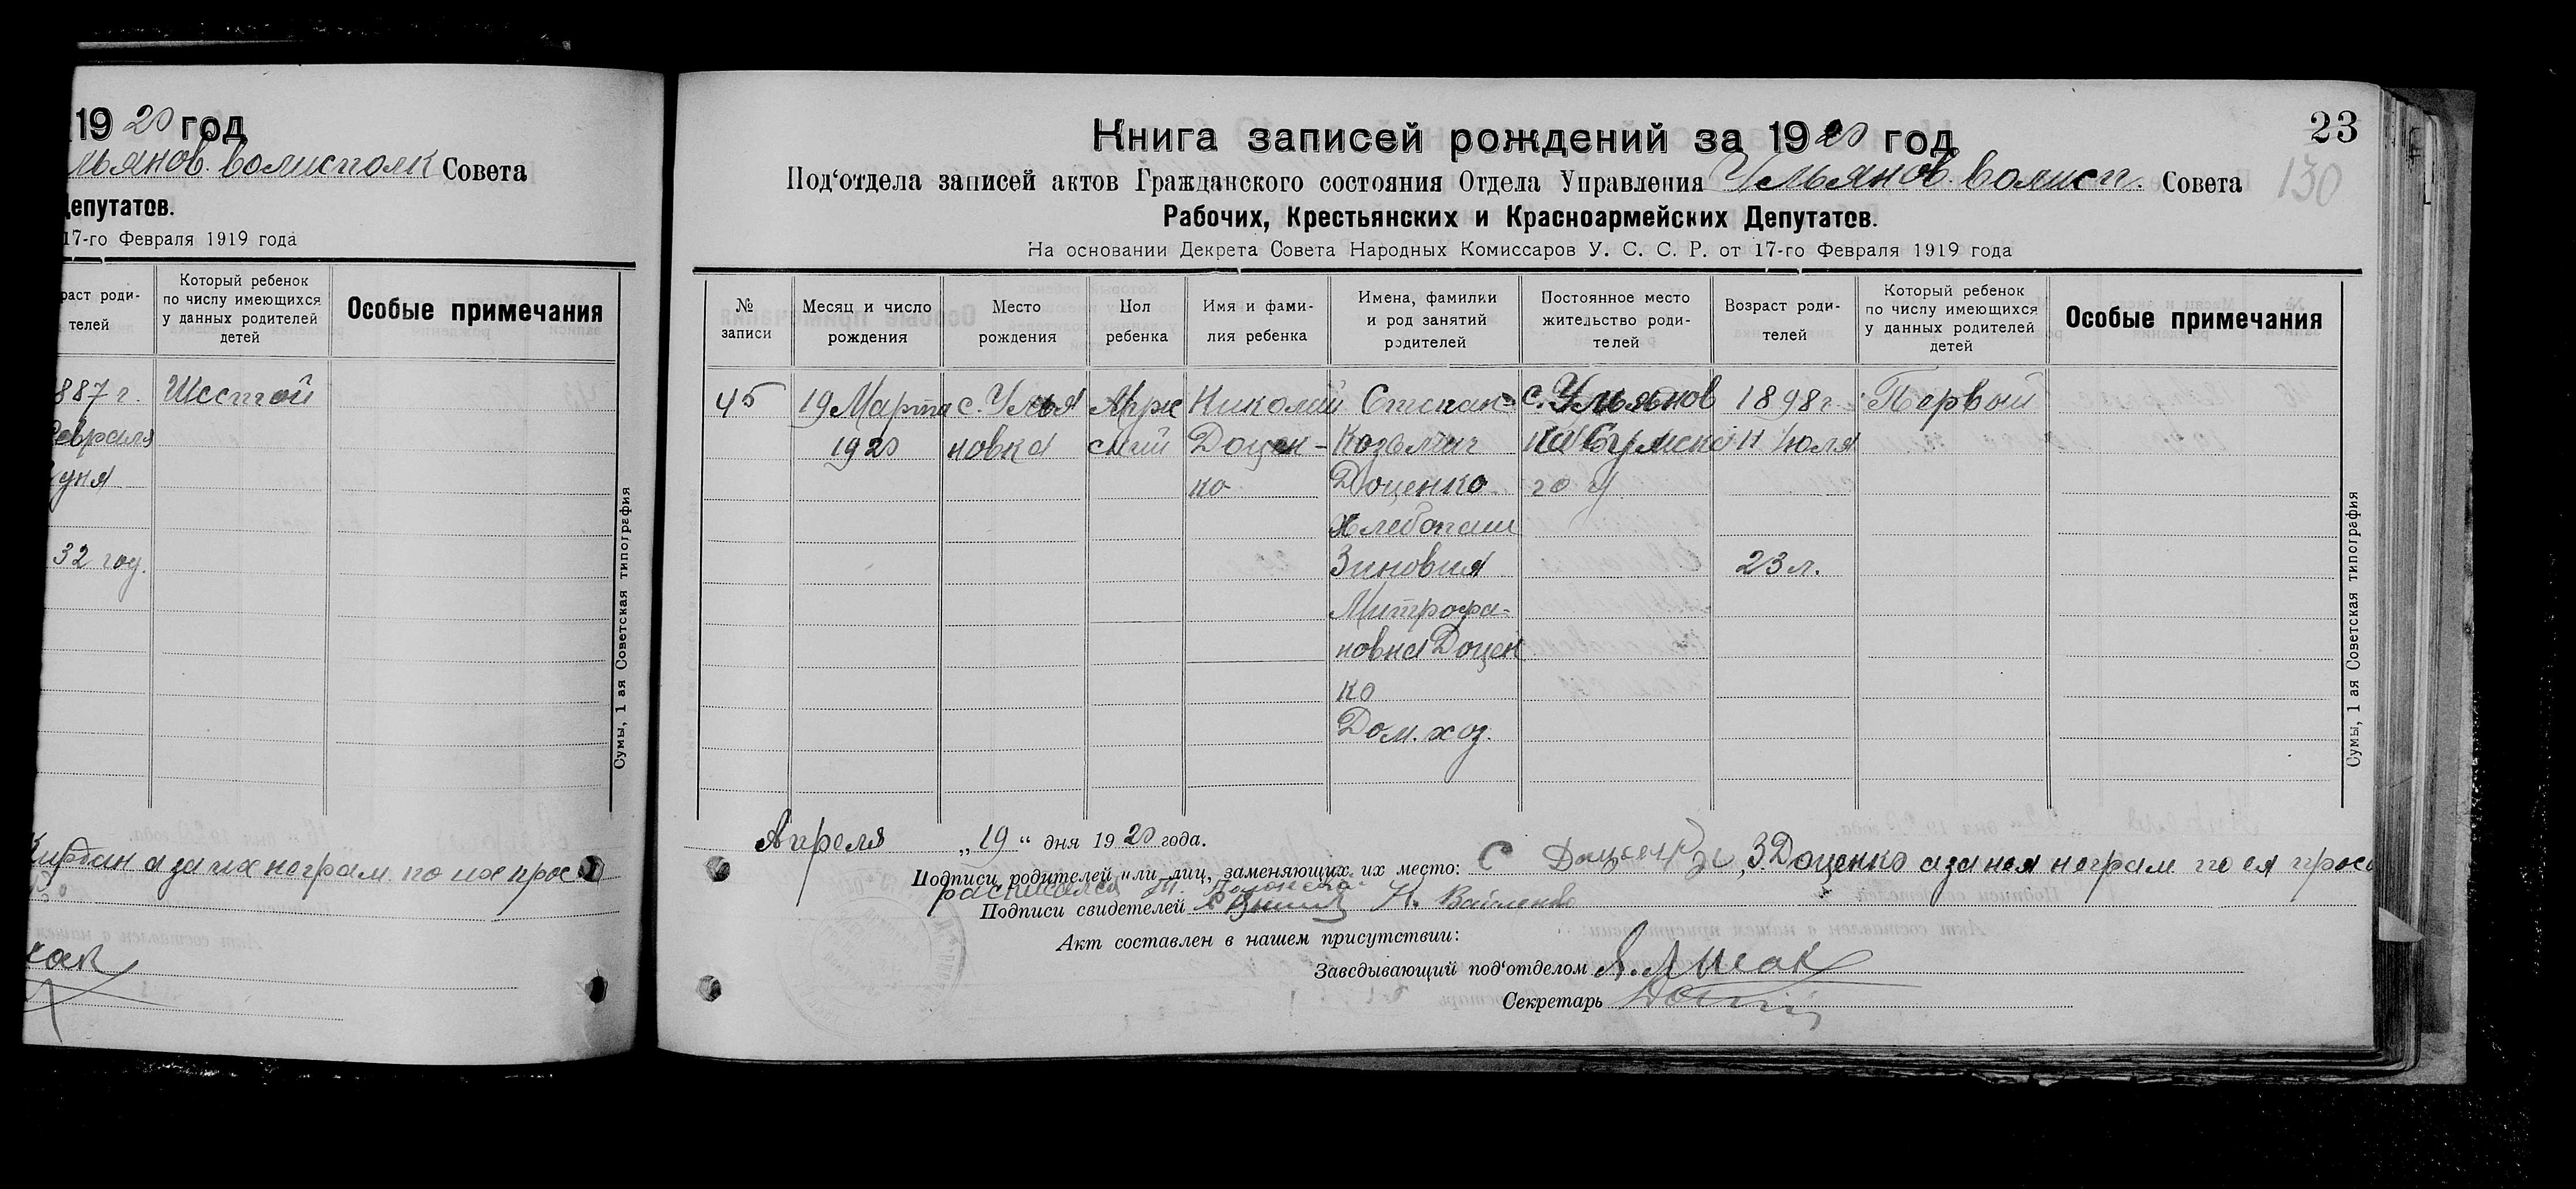 19 20 год
льянов. волисполк Совета
Депутатов.
17-го Февраля 1919 года
раст роди-
телей
Который ребенок
по числу имеющихся
у данных родителей
детей
Особые примечания
887 г. Шестой
евраля
32 год.
Сумы, 1 ая Советская типография
а за их неграм. по
23
130
Книга записей рождений за 1920 год
Под‘отдела записей актов Гражданского состояния Отдела Управления Ульянов. волисп. Совета
Рабочих, Крестьянских и Красноармейских Депутатов.
На основании Декрета Совета Народных Комиссаров У. С. С. Р. от 17-го Февраля 1919 года
№
записи
Месяц и число
рождения
Место
рождения
Пол
ребенка
Имя и фами-
лия ребенка
Имена, фамилии
и род занятий
родителей
Постоянное место
жительство роди-
телей
Возраст роди-
телей
Который ребенок
по числу имеющихся
у данных родителей
детей
Особые примечания
45
19 Марта
1920
с. Улья
новка
Муж
ской
Николай
Доцен-
ко
Степан
Козьмич
Доценко
Хлебопаш
Зиновия
Митрофа-
новна Доцен
ко
Дом. хоз.
с. Ульянов
ка Сумско
го у
1898 г.
11 Июля
23 л.
Первый
Сумы, 1 ая Советская типография
Апреля „19“ дня 1920 года.
Подписи родителей или лиц, заменяющих их место: С Доценко, З. Доценко а за нея неграм. по ея прос
расписался
Подписи свидетелей
Акт составлен в нашем присутствии:
Заведывающий под‘отделом
Секретарь